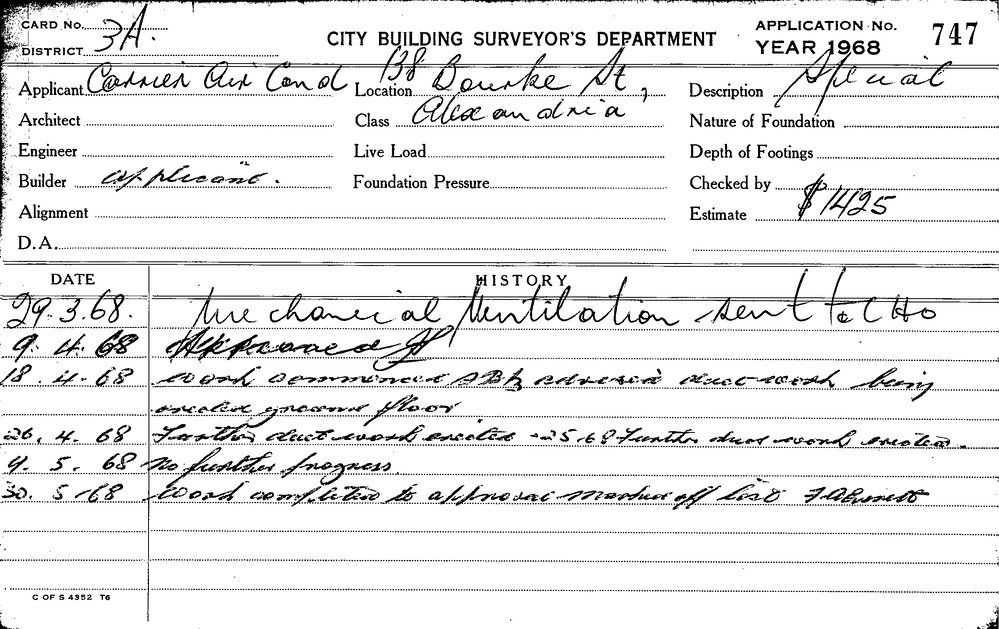 CARD No.
DISTRICT 3A.
CITY BUILDING SURVEYOR'S DEPARTMENT
APPLICATION No. 747
YEAR 1968
Applicant Carrier Air Cond Location 138 Bourke St, Description Special
Architect Class Alexandria Nature of Foundation
Engineer Live Load Depth of Footings
Builder applicant. Foundation Pressure Checked by
Alignment Estimate $1425
D.A.
DATE HISTORY
29.3.68. Mechanical Ventilation sent to CHO
9. 4. 68 Approved
18. 4. 68 Work commenced advised duct work being
erected ground floor
26. 4. 68 Further duct work erected -2 5 68 Further duct work erected.
9. 5. 68 No further progress.
30. 5 68 Work completed to approval marked off list
C OF S 4352 T6